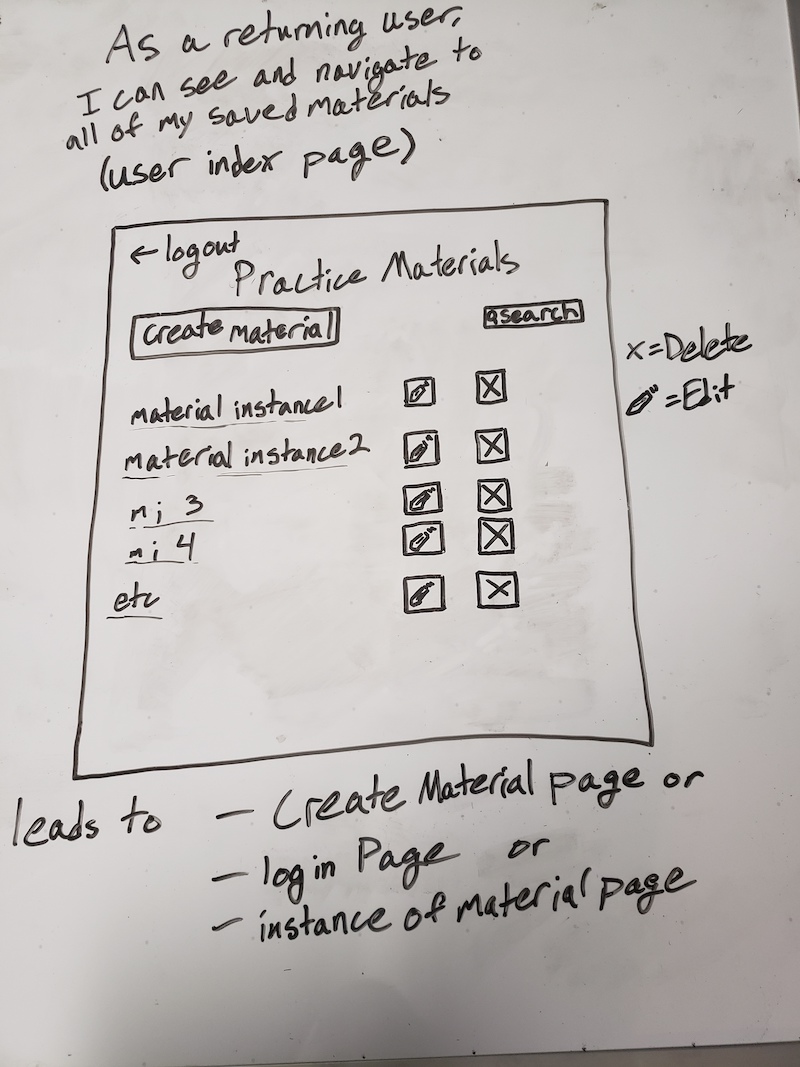 As a returning user,
I can see and navigate to
all of my saved materials
(user index page)
← logout
Practice Materials
create material
search
x=Delete
=Edit
material instance1
X
material instance2
X
mi 3
X
mi 4
X
etc
X
leads to – Create Material page or
– login Page or
– instance of material page